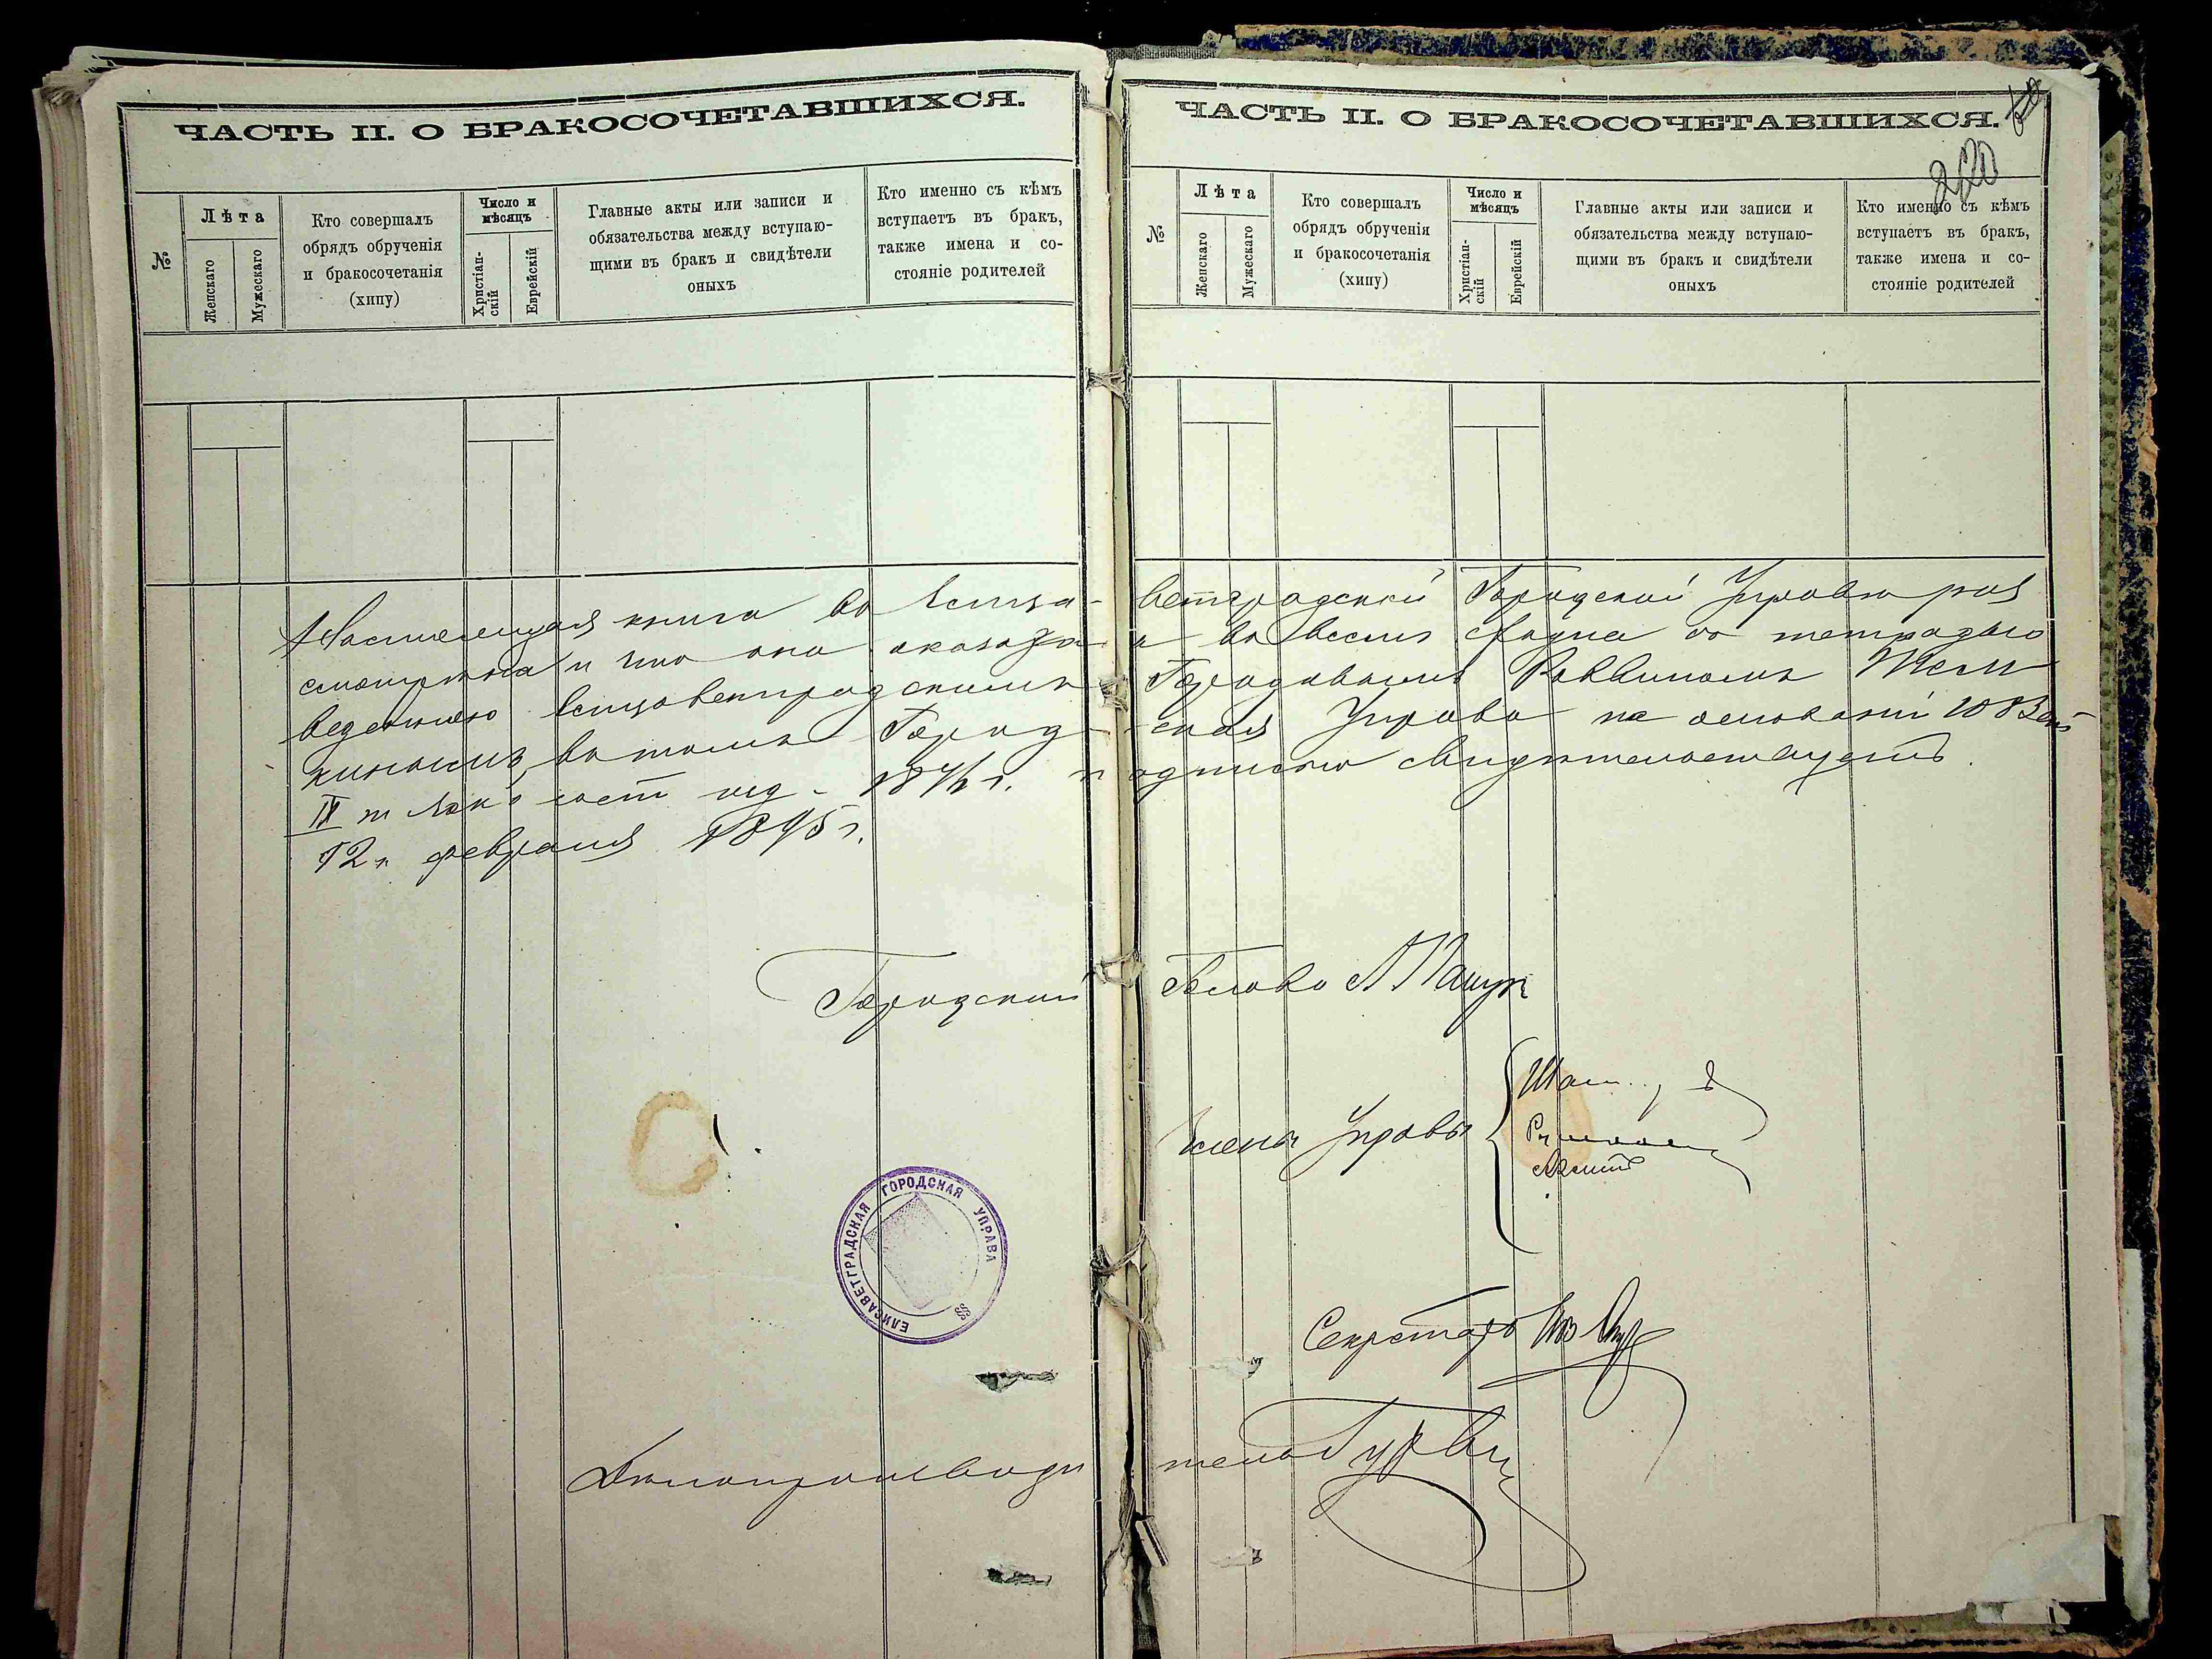 ЧАСТЬ II. О БРАКОСОЧЕТАВШИХСЯ.
№
Лѣта
Женскаго
Мужескаго
Кто совершалъ
обрядъ обрученія
и бракосочетанія
(хипу)
Число и
мѣсяцъ
Христіан-
скій
Еврейскій
Главные акты или записи и
обязательства между вступаю-
щими въ бракъ и свидѣтели
оныхъ
Кто именно съ кѣмъ
вступаетъ въ бракъ,
также имена и со-
стояніе родителей
ЧАСТЬ II. О БРАКОСОЧЕТАВШИХСЯ.
220
№
Лѣта
Женскаго
Мужескаго
Кто совершалъ
обрядъ обрученія
и бракосочетанія
(хипу)
Число и
мѣсяцъ
Христіан-
скій
Еврейскій
Главные акты или записи и
обязательства между вступаю-
щими въ бракъ и свидѣтели
оныхъ
Кто именно съ кѣмъ
вступаетъ въ бракъ,
также имена и со-
стояніе родителей
Настоящая книга въ Елиса-ветградской Городской Управѣ раз
смотрѣна и что она оказалась во всемъ сходна съ тетрадью
веденною Елисаветградскимъ Городовымъ Раввиномъ
въ томъ Город-ская Управа на основаніи
IX т Зак о сост изд. 1876 г. подписью свидѣтельствуетъ.
12 февраля 1895 г.
Городской Голова А Пашу
Члены Управы
ЕЛИСАВЕТГРАДСКАЯ ГОРОДСКАЯ УПРАВА
Секретарь
Дѣлопроизводитель Гурви